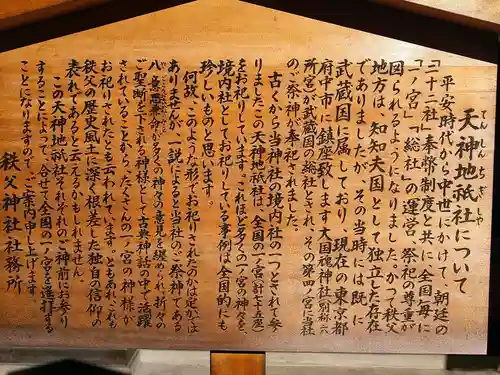 天神地祇社について
てんしんちぎしゃ
平安時代から中世にかけて、朝廷の
「二十二社」奉幣制度と共に、全国毎に
「一ノ宮」「総社」の運営、祭祀の尊重が
図られるようになりました。かつて秩父
地方は、知知夫国として独立した存在
でありましたが、その当時には既に
武蔵国に属しており、現在の東京都
府中市に鎮座致します大国魂神社（別称・六
所宮）が武蔵国の総社とされ、その第四ノ宮に当社
のご祭神が奉祀されました。
古くから当神社の境内社の一つとされて参
りましたこの天神地祇社は、全国の一ノ宮（計七十五座）
をお祀りしています。これほど多くの一ノ宮の神々を、
境内社としてお祀りしている事例は全国的にも
珍しいものと思います。
何故、このような形でお祀りされたのかは定かでは
ありませんが、一説によると当社のご祭神である
八意思兼命が多くの神々の意見を纏められ、折々の
ご聖断を下される神様として、古典神話の中で活躍
されていることから、たくさんの一ノ宮の神様が
お祀りされたとも云われています。ともあれ、これも
秩父の歴史風土に深く根差した独自の信仰の
表れであると云えるかもしれません。
この天神地祇社それぞれのご神前にお参り
することによって、合せて全国の一ノ宮を遙拝する
ことになりますので、ご案内申し上げます。
秩父神社社務所